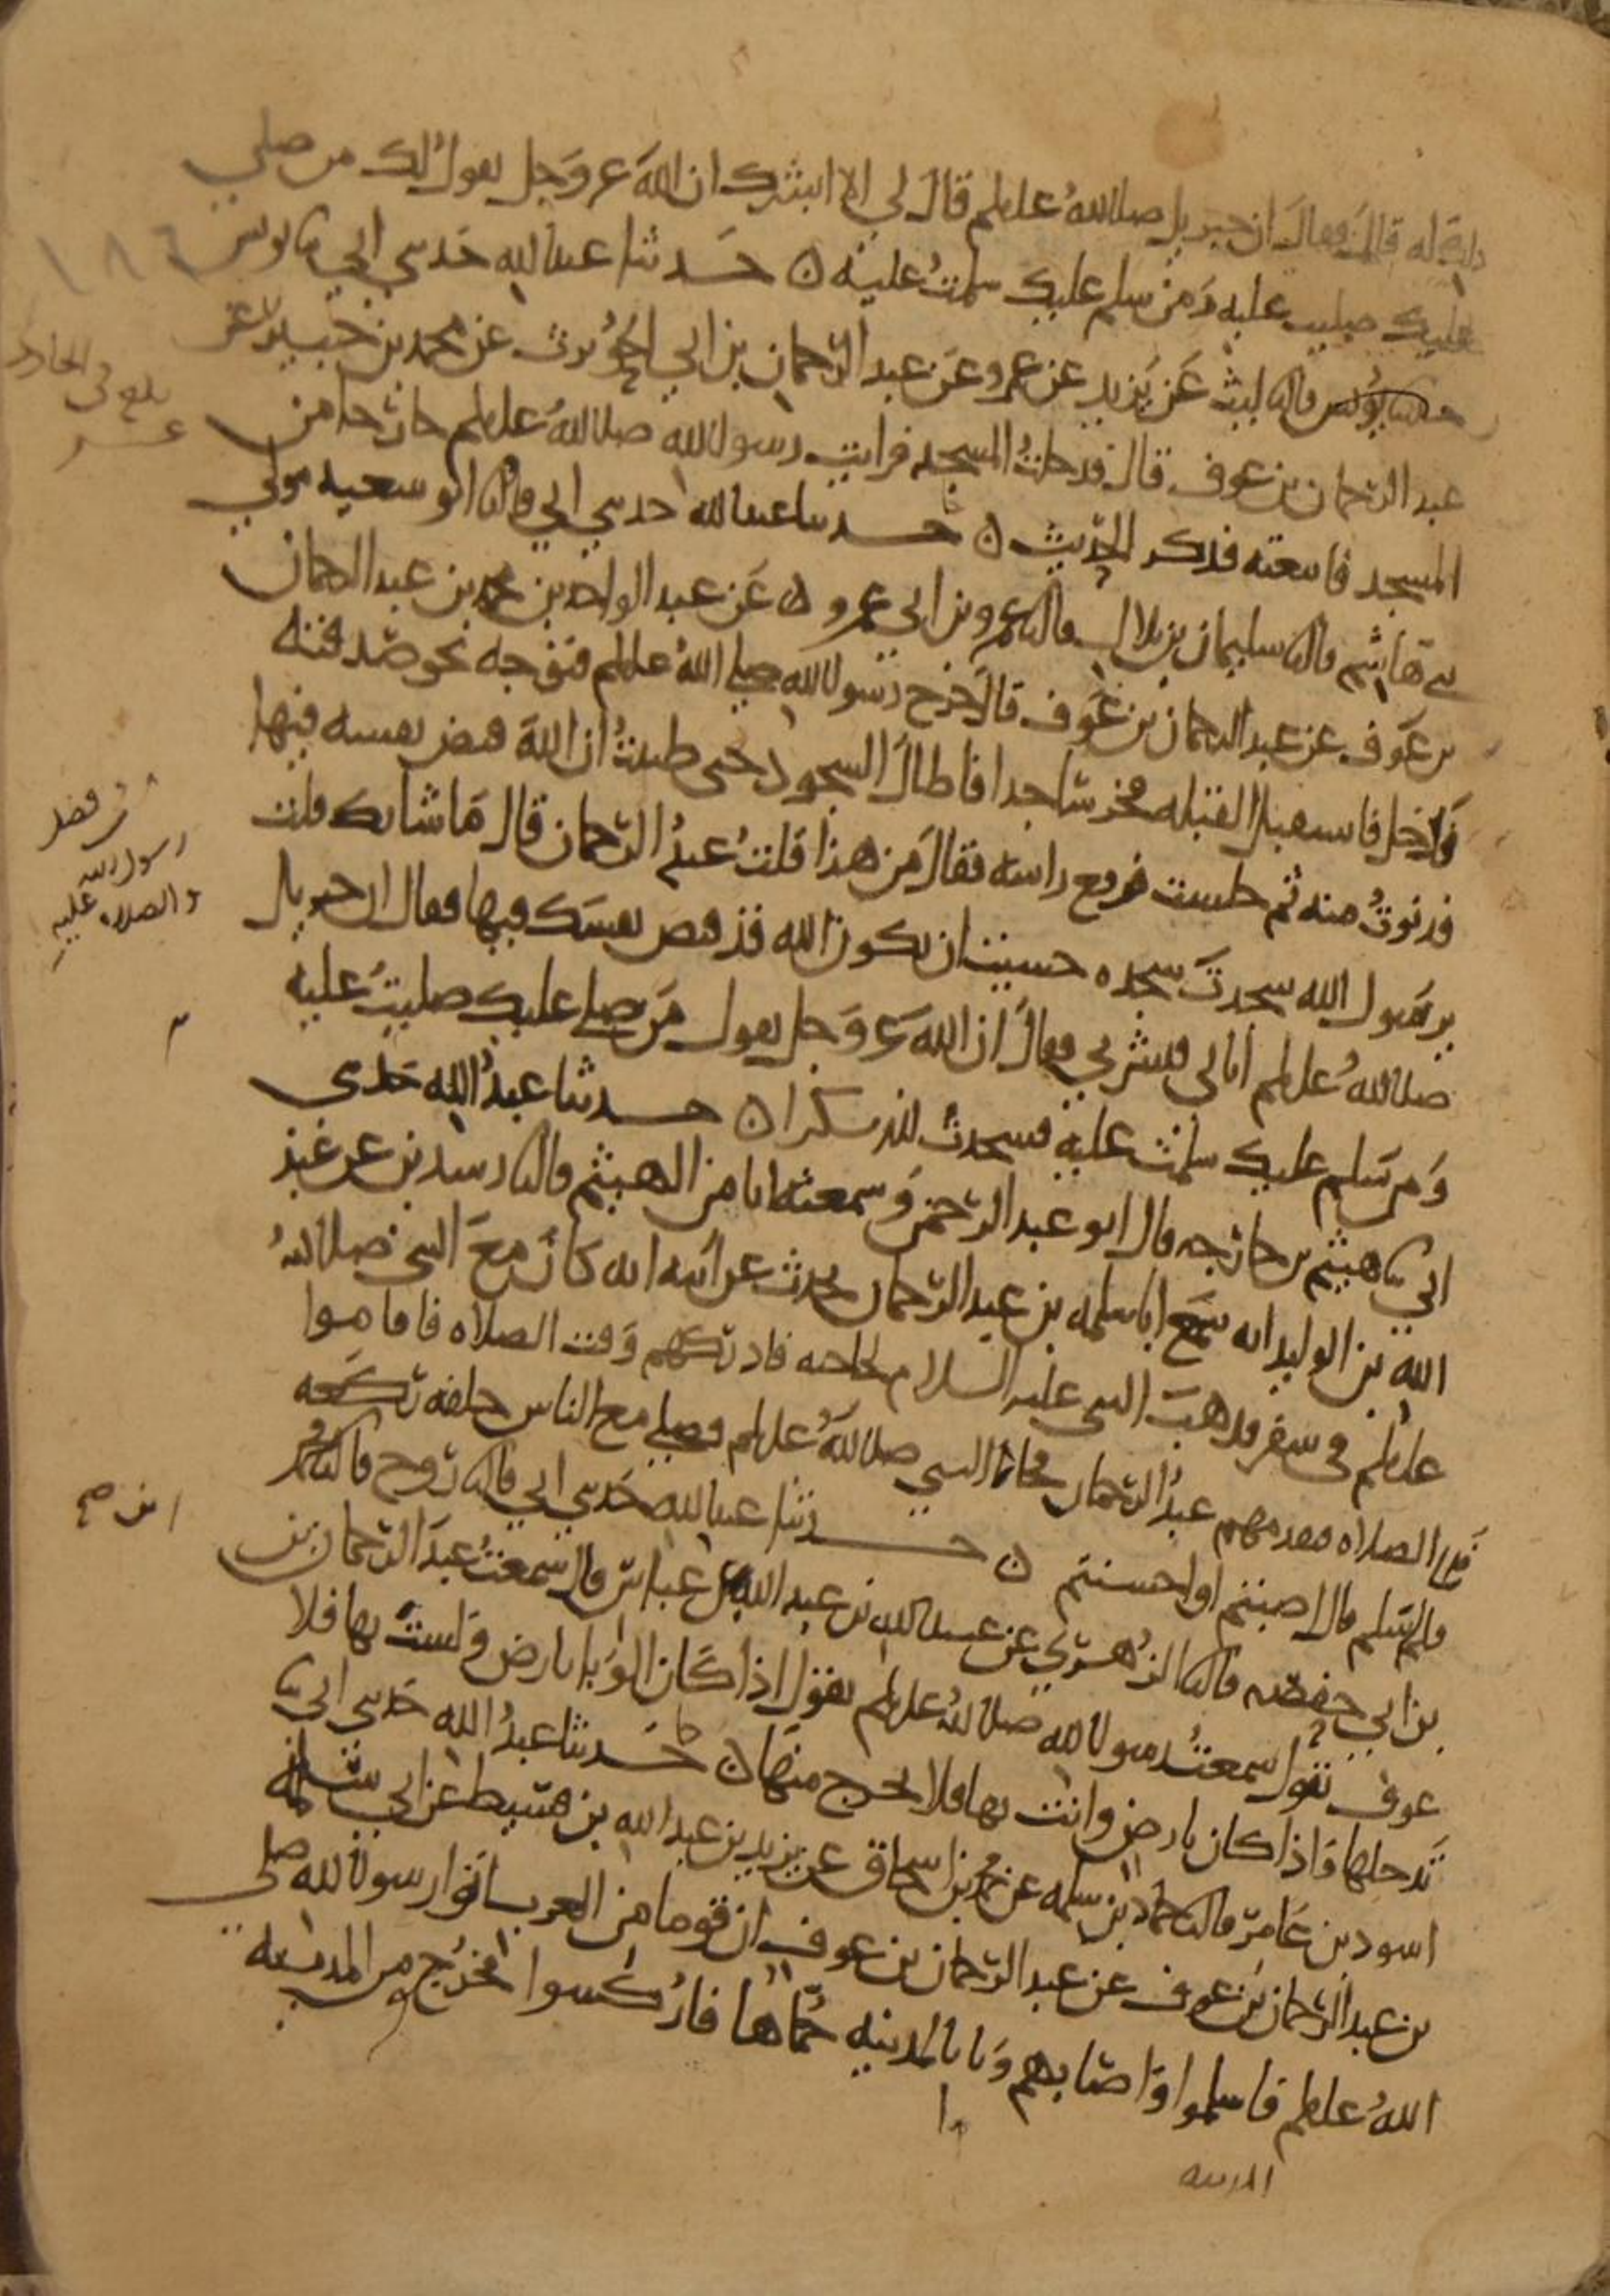 ذلك له قال فقال ان جبريل صلى الله عليه وسلم قال لي الا ابشرك ان الله عز وجل يقول لك من صلى
عليك صليت عليه ومن سلم عليك سلمت عليه ه حدثنا عبد الله حدثني ابي ثنا يونس
ثنا ليث عن يزيد عن عمرو عن عبد الرحمان بن ابي الحويرث عن محمد بن جبير عن
عبد الرحمان بن عوف قال دخلت المسجد فرايت رسول الله صلى الله عليه وسلم خارجا من
المسجد فاتبعته فذكر الحديث ه حدثنا عبد الله حدثني ابي قال ثنا ابو سعيد مولى
بني هاشم قال ثنا سليمان بن بلال قال ثنا عمرو بن ابي عمرو ه عن عبد الواحد بن محمد بن عبد الرحمان
بن عوف عن عبد الرحمان بن عوف قال خرج رسول الله صلى الله عليه وسلم فتوجه نحو صدقته
فدخل فاستقبل القبله فخر ساجدا فاطال السجود حتى ظننت ان الله قبض نفسه فيها
فدنوت منه ثم جلست فرفع راسه فقال من هذا قلت عبد الرحمان قال ما شانك قلت
يرسول الله سجدت سجده حسبت ان يكون الله قد قبض نفسك فيها فقال ان جبريل
صلى الله عليه وسلم اتاني فبشرني فقال ان الله عز وجل يقول من صلى عليك صليت عليه
ومن سلم عليك سلمت عليه فسجدت لله شكرا ه حدثنا عبد الله حدثني
ابي ثنا هيثم بن خارجه قال ابو عبد الرحمن وسمعته انا من الهيثم قال ثنا رشدين عن عبد
الله بن الوليد انه سمع ابا سلمه بن عبد الرحمان يحدث عن ابيه انه كان مع النبي صلى الله
عليه وسلم في سفر فذهب النبي عليه السلام لحاجته فادركهم وقت الصلاه فاقاموا
الصلاه فتقدمهم عبد الرحمان فجاء النبي صلى الله عليه وسلم فصلى مع الناس خلفه ركعه
فلما سلم قال اصبتم او احسنتم ه حدثنا عبد الله حدثني ابي قال ثنا روح قال ثنا محمد
بن ابي حفصه قال ثنا الزهري عن عبيد الله بن عبد الله عن عباس قال سمعت عبد الرحمان بن
عوف يقول سمعت رسول الله صلى الله عليه وسلم يقول اذا كان الوبا بارض ولست بها فلا
تدخلها واذا كان بارض وانت بها فلا تخرج منها ه حدثنا عبد الله حدثني ابي ثنا
اسود بن عامر قال ثنا حماد بن سلمه عن محمد بن اسحاق عن يزيد بن عبد الله بن قسيط عن ابي سلمه
بن عبد الرحمان بن عوف عن عبد الرحمان بن عوف ان قوما من العرب اتوا رسول الله صلى
الله عليه وسلم فاسلموا واصابهم وبا بالمدينه حماها فاركسوا فخرجوا من المدينه
١٨٦
بلغ في الحادي
عشر
في فضل
رسول الله
والصلاه عليه
ابن صح
المدينه